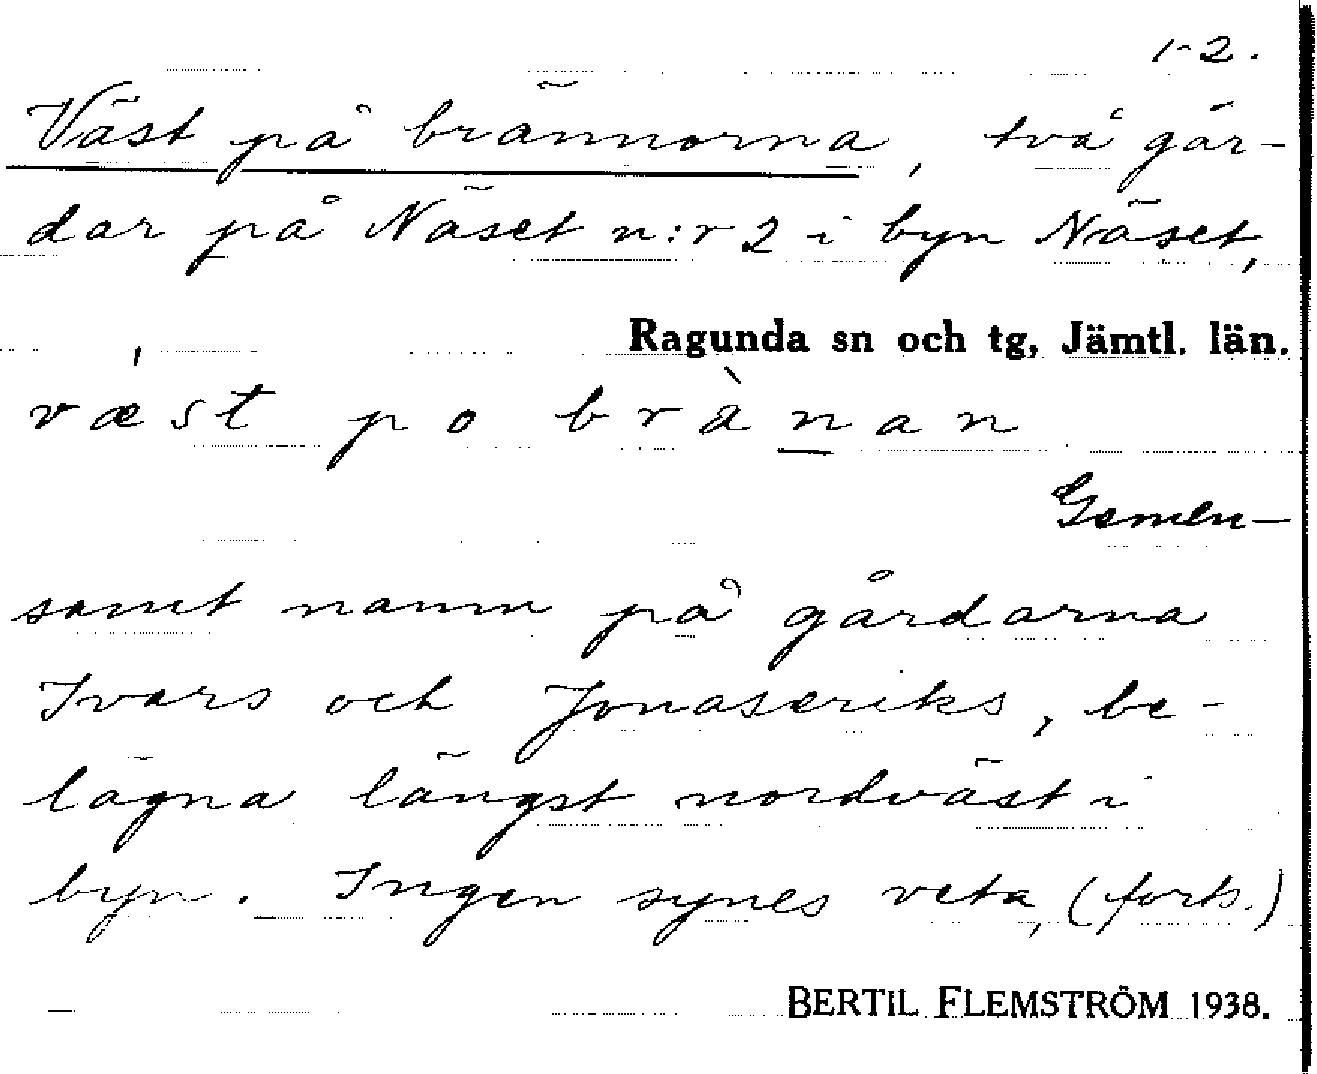 1-2.
Väst på brännorna, två går-
dar på Näset n:r 2 i byn Näset,
Ragunda sn och tg, Jämtl. län.
væ̍st po brànan
Gemen-
samt namn på gårdarna
Ivars och Jonaseriks, be-
lägna längst nordväst i
byn. Ingen synes veta, (forts.)
BERTIL FLEMSTRÖM 1938.